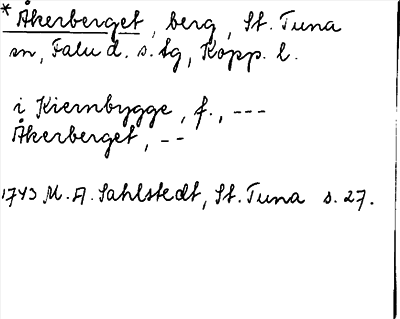 * Åkerberget, berg, St. Tuna
sn, Falu d. s. tg, Kopp. l.
i Kiernbygge, f., ---
Åkerberget, --
1743 M. A. Sahlstedt, St. Tuna s. 27.